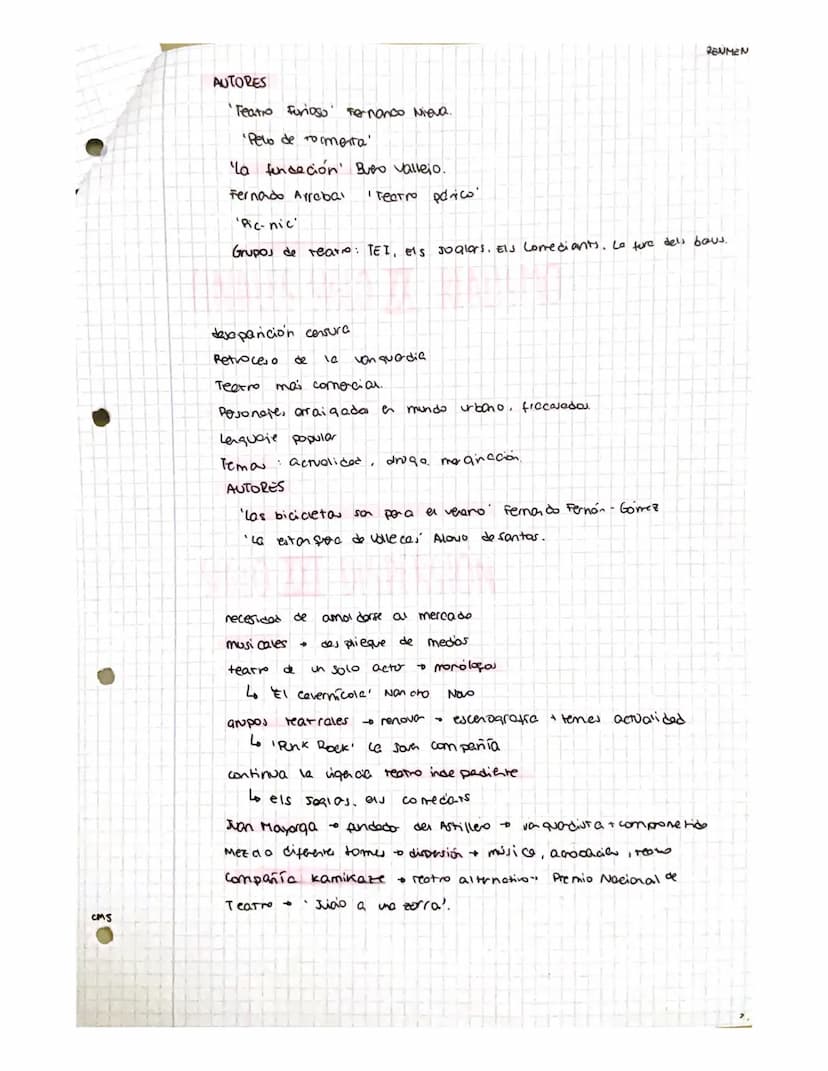 RESUMEN
AUTORES
'Teatro Furioso' Fernando Nieva.
'Pelo de tormenta'
'La fundación' Buero Vallejo.
Fernado Arrabal 'Teatro pánico'
'Pic-nic'
Grupos de teatro: TEI, els Joglars. Els Comediants. La fura dels baus.
desaparición censura
Retroceso de la vanguardia
Teatro más comercial.
Personajes arraigados en mundo urbano, fracasados
Lenguaje popular
Temas: actualidad, droga, marginación.
AUTORES
'Las bicicletas son para el verano' Fernando Fernán-Gómez
'La estanquera de Vallecas' Alonso de Santos.
necesidad de amoldarse al mercado
musicales → despliegue de medios
teatro de un solo actor → monólogos
↳ 'El cavernícola' Nancho Novo
grupos teatrales → renovar → escenografía + temes actualidad
↳ 'Punk Rock' La Joven compañía
continua la vigencia teatro independiente
↳ els Joglas, els comedians
Juan Mayorga → fundador del Astillero → vanguardista + comprometido
Mezcla diferente tomes → diversión → música, acrobacias, teatro
Compañía Kamikaze → teatro alternativo → Premio Nacional de
Teatro → 'Juicio a una zorra'.
CMS